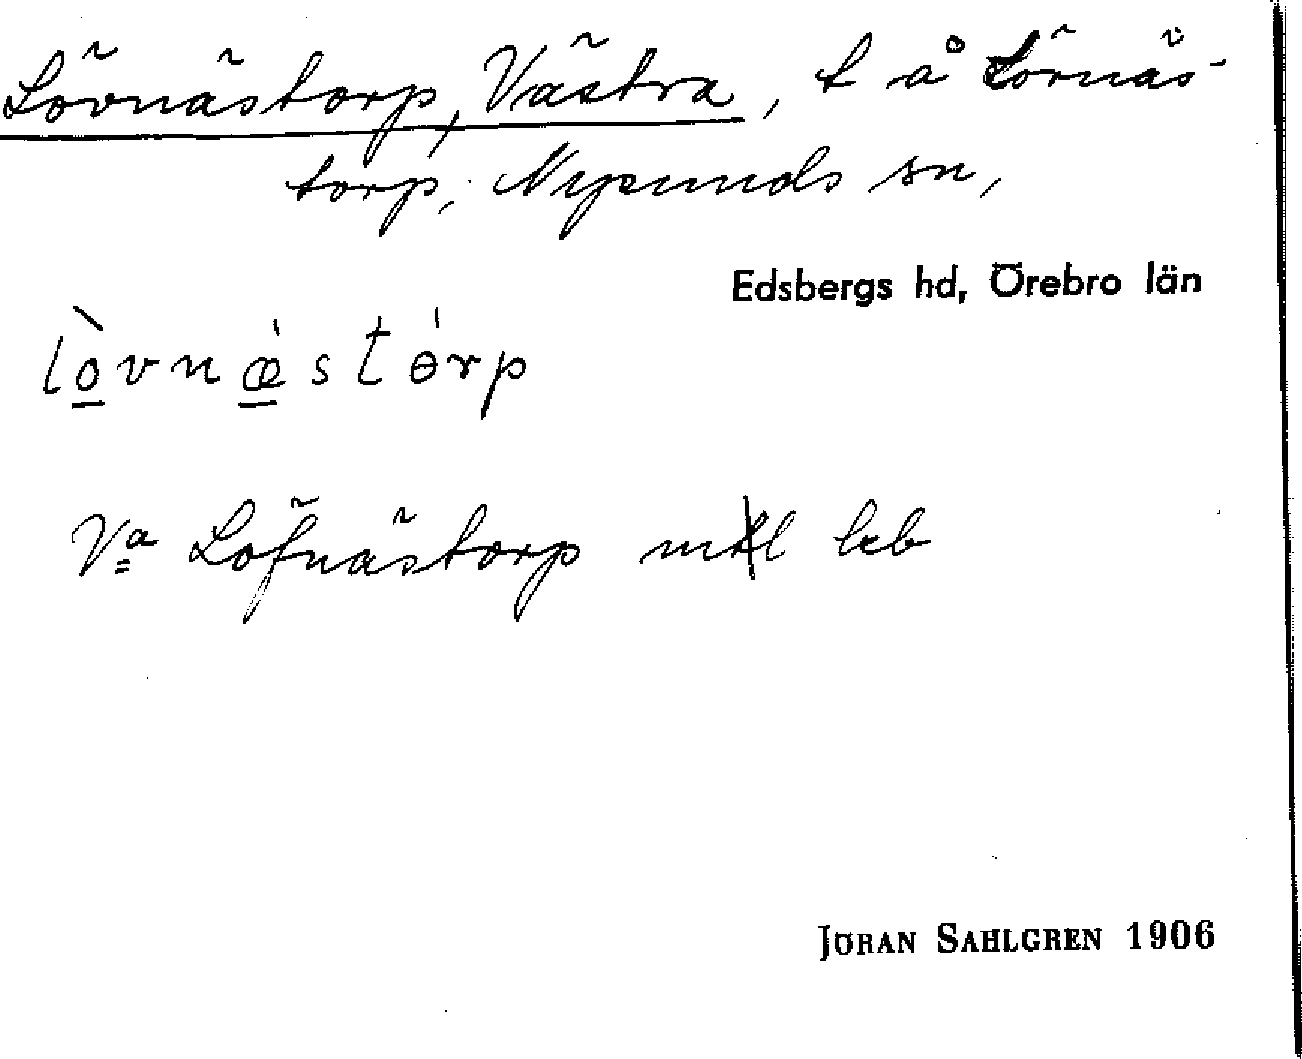 Lövnästorp, Västra, t å Lövnäs-
torp, Nysunds sn,
Edsbergs hd, Örebro län
lo̱vnœ̱stɵrp
Va Löfnästorp mtl leb
JÖRAN SAHLGREN 1906